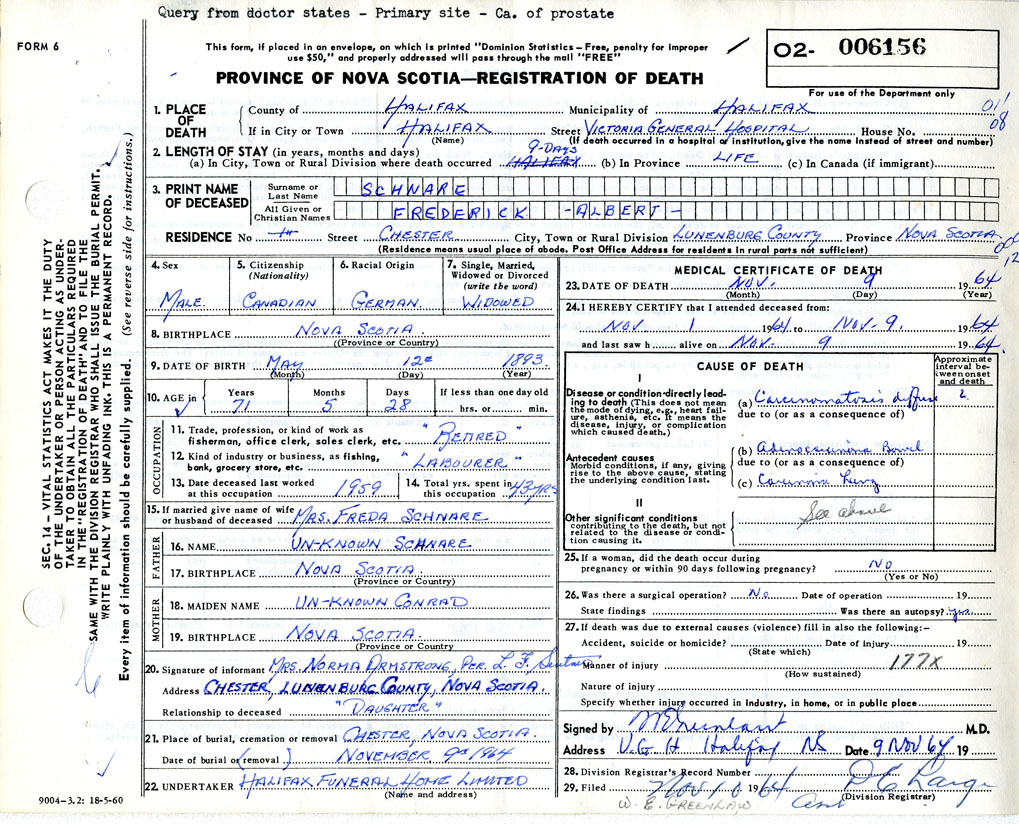 Query from doctor states - Primary site - Ca. of prostate
FORM 6
This form, if placed in an envelope, on which is printed "Dominion Statistics – Free, penalty for improper
use $50," and properly addressed will pass through the mail "FREE"
O2- 006156
For use of the Department only
PROVINCE OF NOVA SCOTIA—REGISTRATION OF DEATH
1. PLACE OF DEATH
County of HALIFAX Municipality of HALIFAX 01
If in City or Town HALIFAX Street VICTORIA GENERAL HOSPITAL House No. 08
(Name) (If death occurred in a hospital or institution, give the name instead of street and number)
2. LENGTH OF STAY (in years, months and days) 9-DAYS
(a) In City, Town or Rural Division where death occurred HALIFAX (b) In Province LIFE (c) In Canada (if immigrant)
3. PRINT NAME OF DECEASED
Surname or Last Name SCHNARE
All Given or Christian Names FREDERICK -ALBERT-
RESIDENCE No Street CHESTER City, Town or Rural Division LUNENBURG COUNTY Province NOVA SCOTIA
(Residence means usual place of abode. Post Office Address for residents in rural parts not sufficient)
12
4. Sex MALE
5. Citizenship (Nationality) CANADIAN
6. Racial Origin GERMAN
7. Single, Married, Widowed or Divorced (write the word) WIDOWED
8. BIRTHPLACE NOVA SCOTIA.
(Province or Country)
9. DATE OF BIRTH MAY 12th 1893
(Month) (Day) (Year)
10. AGE in Years 71 Months 5 Days 28 If less than one day old hrs. or min.
OCCUPATION
11. Trade, profession, or kind of work as
fisherman, office clerk, sales clerk, etc. "RETIRED"
12. Kind of industry or business, as fishing,
bank, grocery store, etc. "LABOURER"
13. Date deceased last worked
at this occupation 1959
14. Total yrs. spent in
this occupation 43 YRS
15. If married give name of wife
or husband of deceased MRS. FREDA SCHNARE
FATHER
16. NAME UN-KNOWN SCHNARE
17. BIRTHPLACE NOVA SCOTIA
(Province or Country)
MOTHER
18. MAIDEN NAME UN-KNOWN CONRAD
19. BIRTHPLACE NOVA SCOTIA.
(Province or Country)
20. Signature of informant MRS. NORMA ARMSTRONG, PER. L. F.
Address CHESTER, LUNENBURG COUNTY, NOVA SCOTIA.
Relationship to deceased "DAUGHTER"
21. Place of burial, cremation or removal CHESTER, NOVA SCOTIA.
Date of burial or (removal) NOVEMBER 9th 1964
22. UNDERTAKER HALIFAX FUNERAL HOME LIMITED
(Name and address)
9004-3.2: 18-5-60
MEDICAL CERTIFICATE OF DEATH
23. DATE OF DEATH NOV. 9 1964
(Month) (Day) (Year)
24. I HEREBY CERTIFY that I attended deceased from:
NOV. 1 1964 to NOV-9. 1964
and last saw h alive on NOV. 9 1964.
CAUSE OF DEATH
Approximate interval between onset and death
I
Disease or condition directly leading to death (This does not mean the mode of dying, e.g., heart failure, asthenia, etc. It means the disease, injury, or complication which caused death.)
(a) Carcinomatosis diffuse 2.
due to (or as a consequence of)
Antecedent causes
Morbid conditions, if any, giving rise to the above cause, stating the underlying condition last.
(b) Adenocarcinoma Bowel
due to (or as a consequence of)
(c) Carcinoma Lung
II
Other significant conditions
contributing to the death, but not related to the disease or condition causing it.
See above
25. If a woman, did the death occur during
pregnancy or within 90 days following pregnancy? NO
(Yes or No)
26. Was there a surgical operation? NO Date of operation 19
State findings Was there an autopsy? yes
27. If death was due to external causes (violence) fill in also the following:-
Accident, suicide or homicide? Date of injury 19
(State which)
Manner of injury 177X
(How sustained)
Nature of injury
Specify whether injury occurred in industry, in home, or in public place
Signed by M.D.
Address V.G.H Halifax NS Date 9 NOV 64 19
28. Division Registrar's Record Number
29. Filed Nov 10 1964
(Division Registrar)
W. E. GREENLAW
SEC. 14 – VITAL STATISTICS ACT MAKES IT THE DUTY
OF THE UNDERTAKER OR PERSON ACTING AS UNDER-
TAKER TO OBTAIN ALL THE PARTICULARS REQUIRED
IN THE "REGISTRATION OF DEATH" AND TO FILE THE
SAME WITH THE DIVISION REGISTRAR WHO SHALL ISSUE THE BURIAL PERMIT.
WRITE PLAINLY WITH UNFADING INK. THIS IS A PERMANENT RECORD.
Every item of information should be carefully supplied. (See reverse side for instructions.)